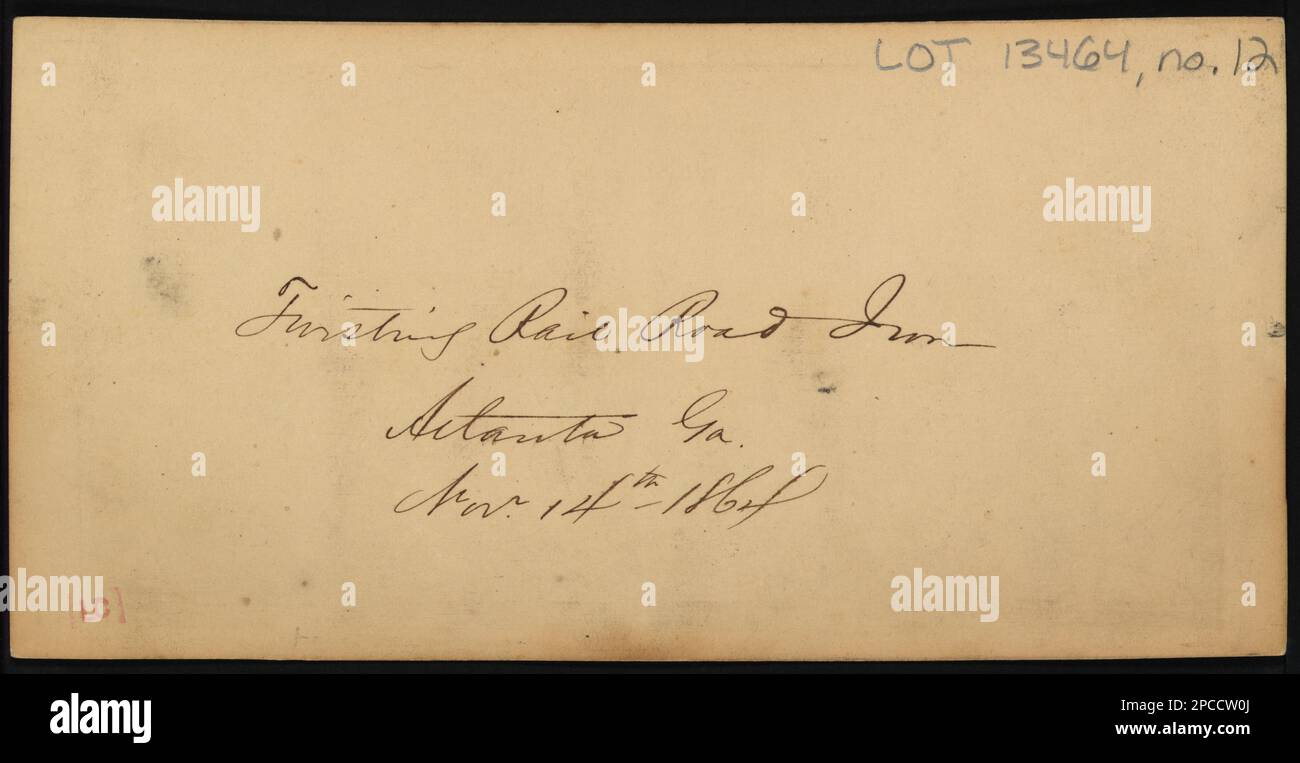 LOT 13464, no. 12
alamy
alamy
Twisting Rail Road Iron
alamy
Atlanta Ga.
Nov. 14th - 1864
alamy
alamy
alamy
Image ID: 2PCCW0J
www.alamy.com